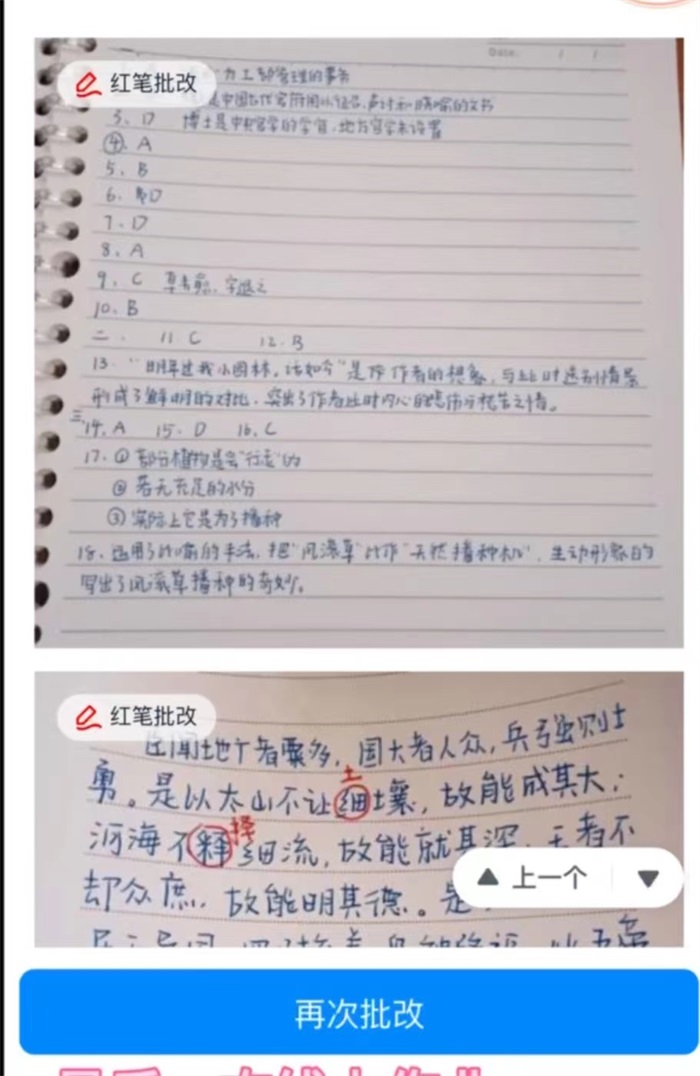 Date: / /
红笔批改
为工部管理的事务
是中国古代官府用以
3、D 博士是中央官学的学官,地方官学未设置
④、A
5、B
6、D
7、D
8、A
9、C 字退之
10、B
二、 11、C 12、B
13、"明年过我小园林,话如今"是作者的想象,与此时送别情景
形成了鲜明的对比,突出了作者此时内心的悲伤之情。
三、
14、A 15、D 16、C
17、① 部分植物是会"行走"的
② 若无充足的水分
③ 实际上它是为了播种
18、运用了比喻的手法,把"风滚草"比作"天然播种机",生动形象的
写出了风滚草播种的奇妙。
红笔批改
臣闻地广者粟多,国大者人众,兵强则士
勇。是以太山不让细壤,故能成其大;
土
河海不释细流,故能就其深,王者不
择
却众庶,故能明其德。是
上一个
再次批改